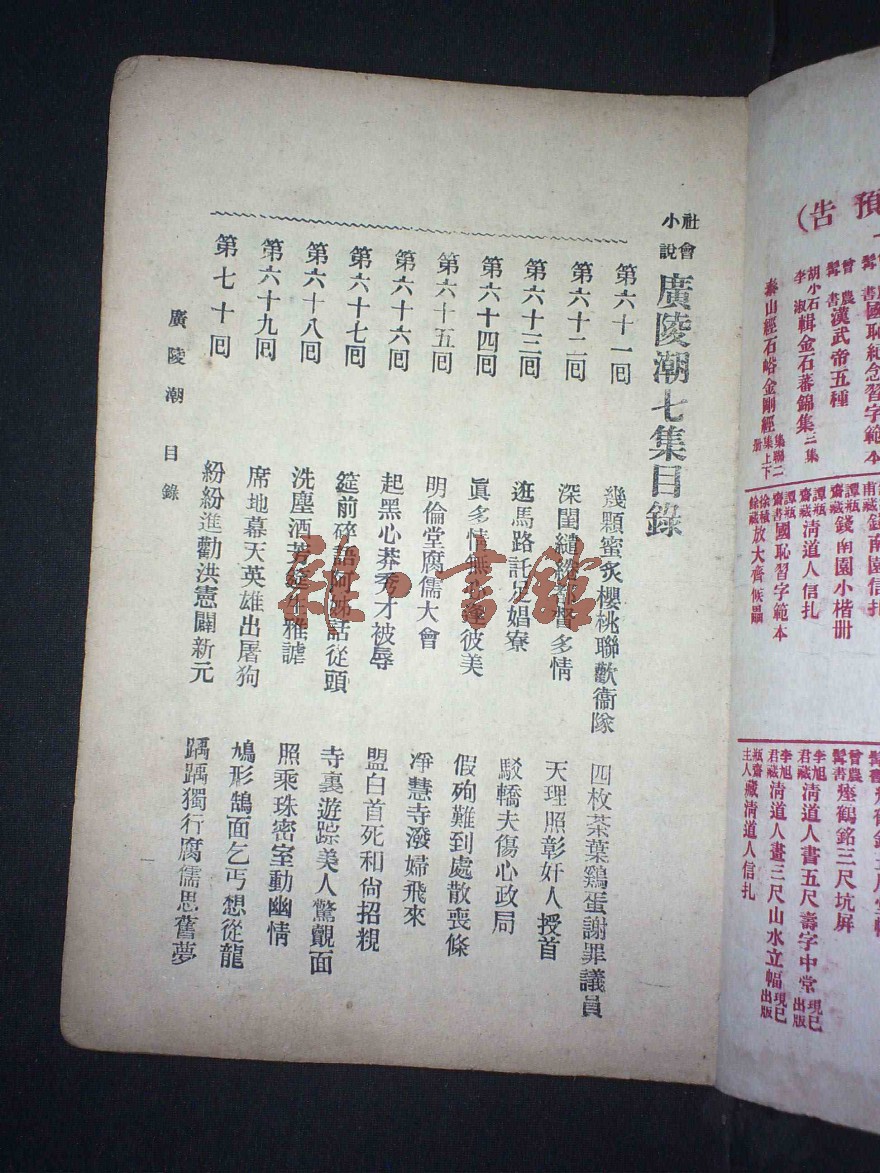 社會小說 廣陵潮七集目錄
第六十一回 幾顆蜜炙櫻桃聯歡衞隊 四枚茶葉鷄蛋謝罪議員
第六十二回 深閨繾綣 多情 天理照彰奸人授首
第六十三回 逛馬路託足娼寮 駁轎夫傷心政局
第六十四回 眞多情無 逢彼美 假殉難到處散喪條
第六十五回 明倫堂腐儒大會 淨慧寺潑婦飛來
第六十六回 起黑心莽秀才被辱 盟白首死和尙招親
第六十七回 筵前碎語 話從頭 寺裏遊踪美人驚覿面
第六十八回 洗塵酒芳筵生雅謔 照乘珠密室動幽情
第六十九回 席地幕天英雄出屠狗 鳩形鵠面乞丐想從龍
第七十回 紛紛進勸洪憲闢新元 踽踽獨行腐儒思舊夢
廣陵潮 目錄
雜·書館
預告)
國恥紀念習字範本
曾農髯書漢武帝五種
胡小石李淑輯金石蕃錦集三集
泰山經石峪金剛經集聯二集上下册
錢南園信扎
譚瓶齋藏錢南園小楷册
譚瓶齋藏清道人信扎
譚瓶齋書國恥習字範本
徐楨餘藏放大齊侯罍
曾農髯書瘞鶴銘三尺坑屏
李旭君藏清道人書五尺壽字中堂 現已出版
李旭君藏清道人畫三尺山水立幅 現已出版
瓶齋主人藏清道人信扎